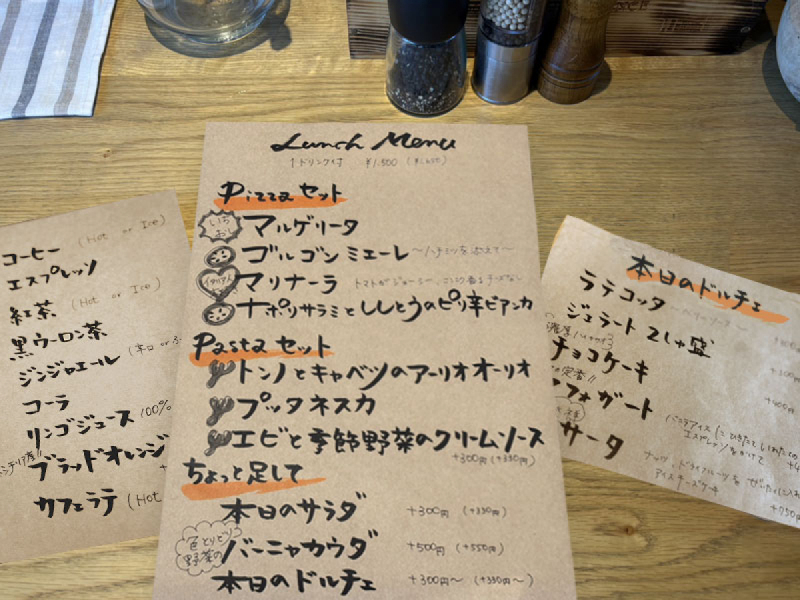 Lunch Menu
↑ドリンク付 ¥1,500 (¥1,650)
Pizza セット
いちおし マルゲリータ
ゴルゴンミエーレ 〜ハチミツを添えて〜
マリナーラ
ナポリサラミとししとうのピリ辛ビアンカ
Pasta セット
トンノとキャベツのアーリオオーリオ
プッタネスカ
エビと季節野菜のクリームソース
+300円 (+330円)
ちょっと足して
本日のサラダ +300円 (+330円)
色とりどり野菜の バーニャカウダ +500円 (+550円)
本日のドルチェ +300円〜 (+330円〜)
コーヒー (Hot or Ice)
エスプレッソ
紅茶 (Hot or Ice)
黒ウーロン茶
ジンジャエール
コーラ
リンゴジュース 100%
ブラッドオレンジ
カフェラテ (Hot
本日のドルチェ
ラテコッタ
ジェラート 2しゅ盛
チョコケーキ
の定番!!
フォガート
サータ
アイスチーズケーキ